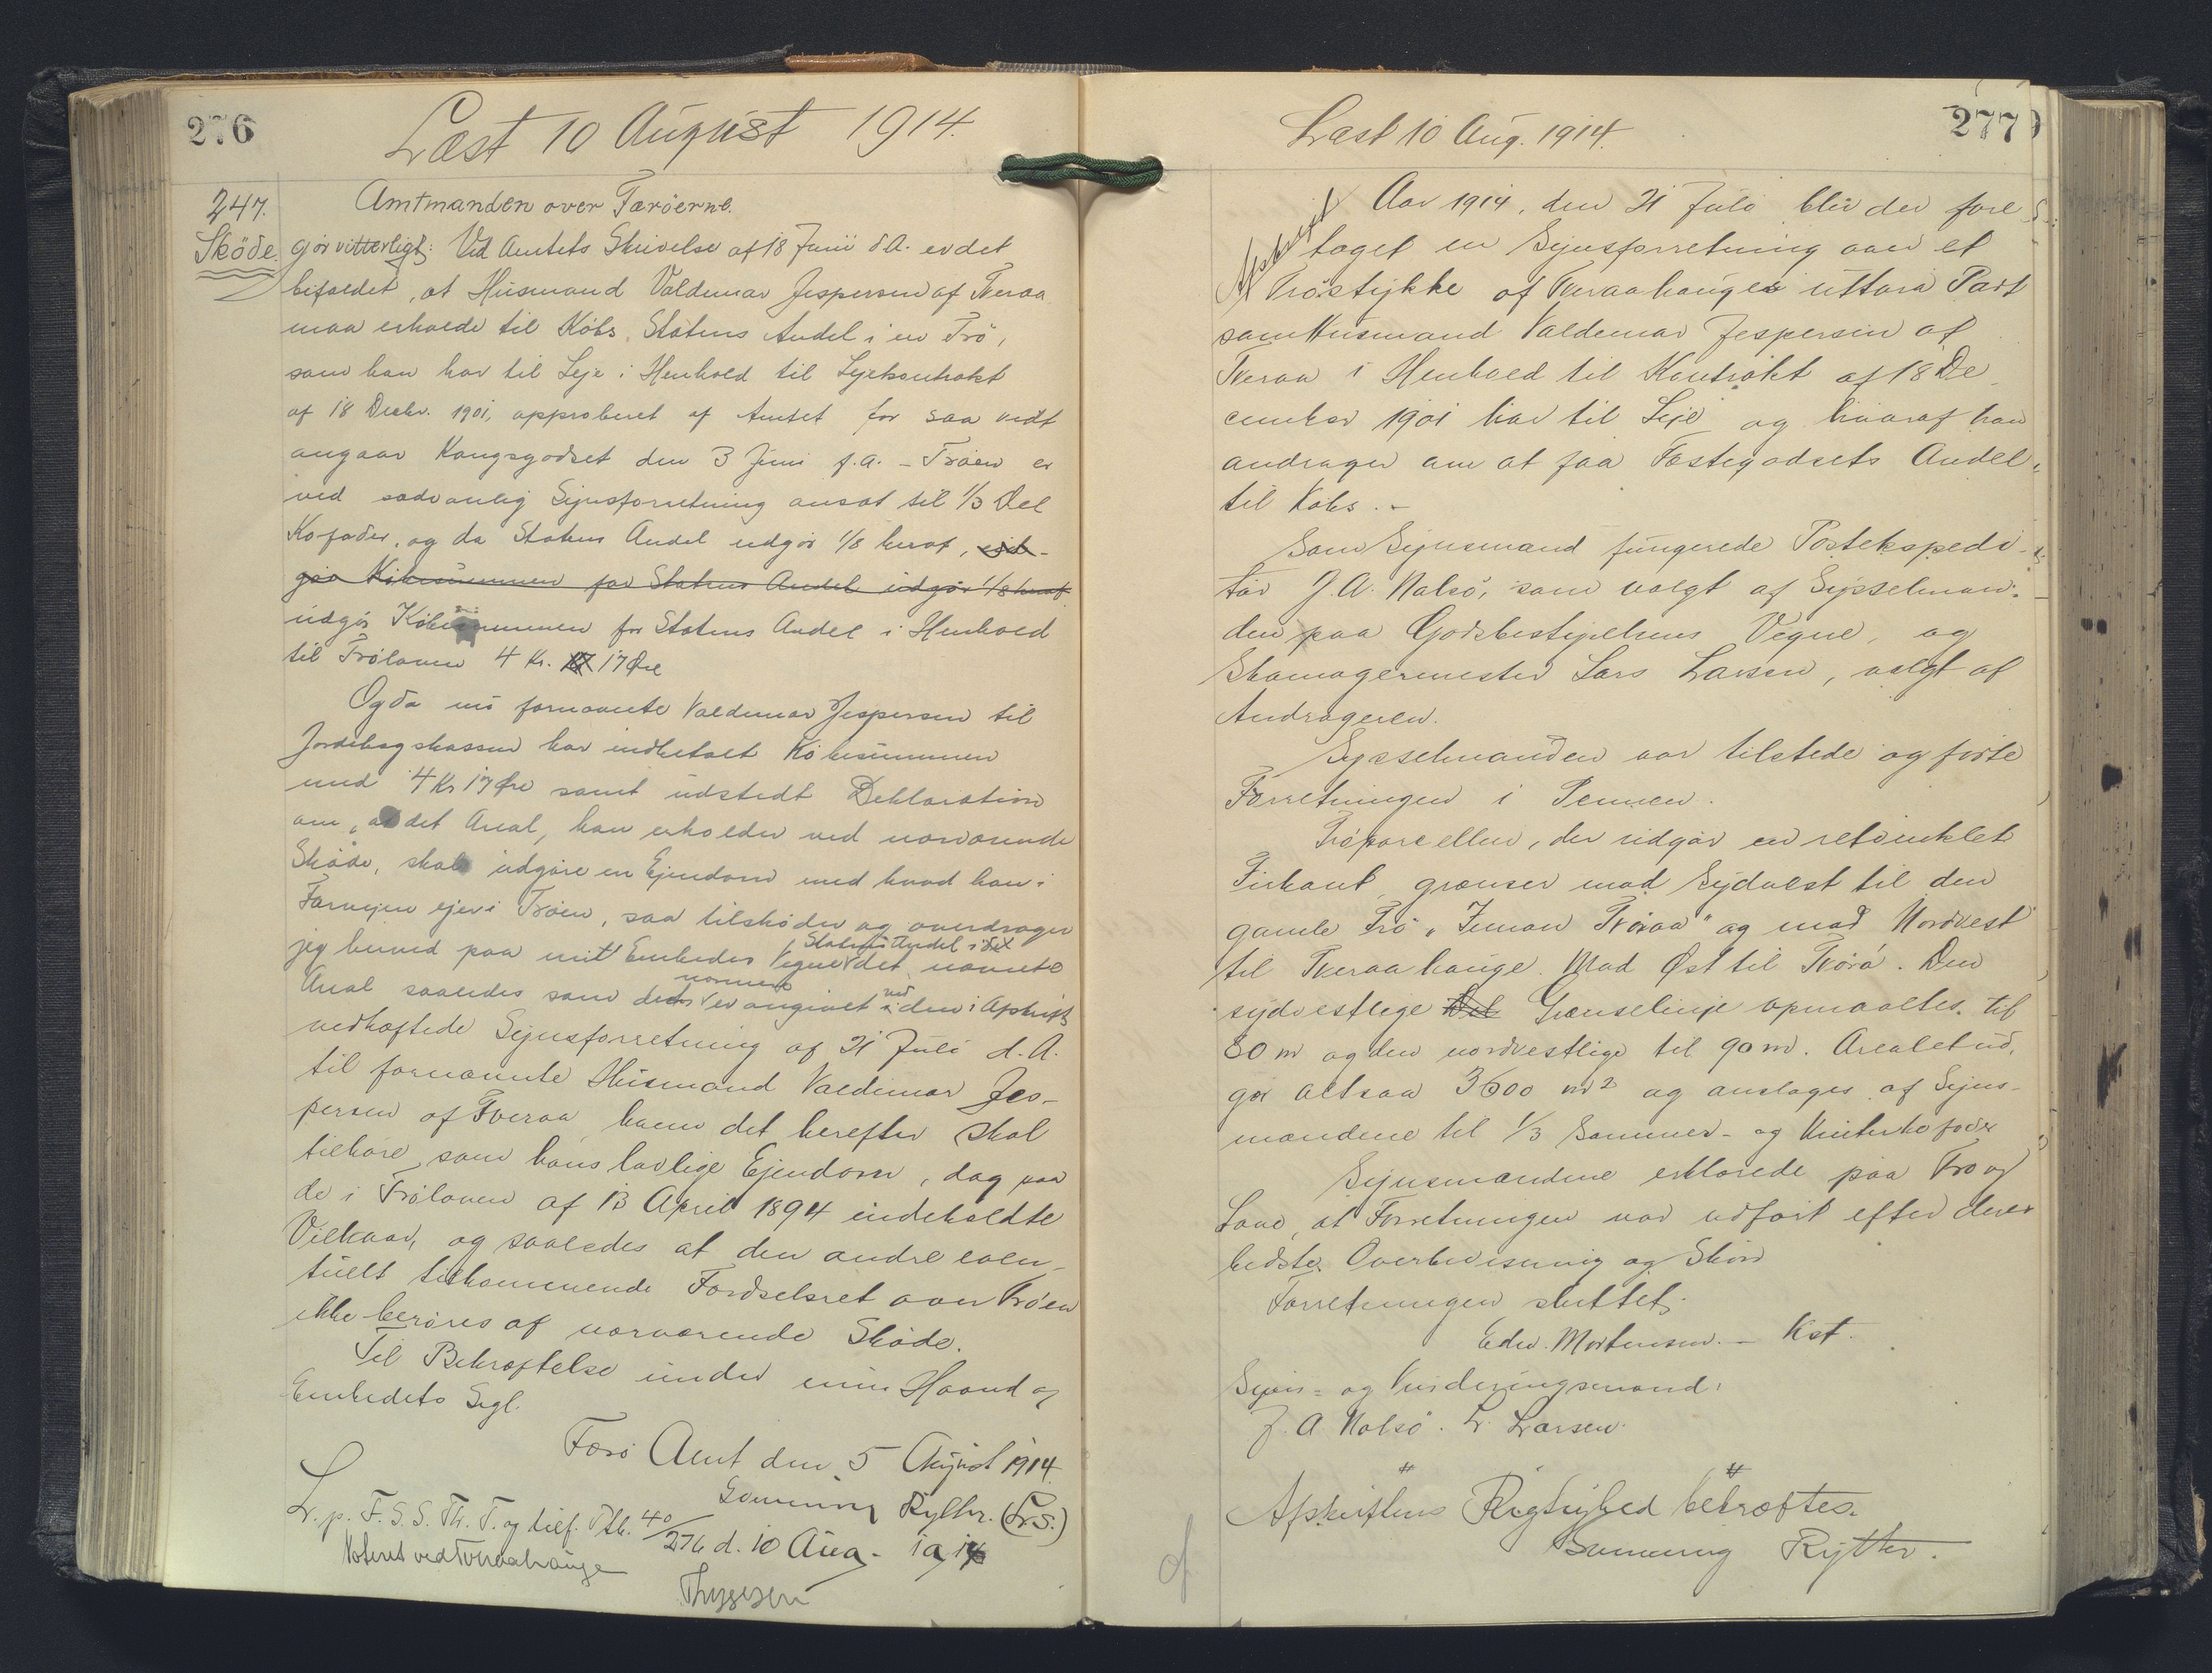 276
Læst 10 August 1914.
247.
Sköde.
Amtmanden over Færöerne.
gör vitterligt: Ved Amtets Skrivelse af 18 Juni d A. er det
bifaldet, at Husmand Valdemar Jespersen af Tveraa
maa erholde til Köbs Statens Andel i en Trö,
som han har til Leje i Henhold til Lejekontrakt
af 18 Decbr. 1901, approberet af Amtet for saa vidt
angaar Kongsgodset den 3 Juni f.a. - Tröen er
ved sædvanlig Synsforretning ansat til 1/3 Del
Kofoder, og da Statens Andel udgör 1/8 heraf,
gör Köbesummen for Statens Andel udgör 1/8 heraf
udgör Köbesummen for Statens Andel i Henhold
til Tröloven 4 Kr. 17 Øre
Og da nu fornævnte Valdemar Jespersen til
Jordebogskassen har indbetalt Köbesummen
med 4 Kr 17 Øre samt udstedt Deklaration
om, at det Areal, han erholder ved nærværende
Sköde, skal udgöre en Ejendom med hvad han i
Forvejen ejer i Tröen, saa tilsköder og overdrager
jeg herved paa mit Embedes Vegne Statens Andel i det nævnte
Areal saaledes som det nærmere er angivet ved den i Afskrift
vedhæftede Synsforretning af 21 Juli d.A.
til fornævnte Husmand Valdemar Jes-
persen af Tveraa, hvem det herefter skal
tilhöre som hans lovlige Ejendom, dog paa
de i Tröloven af 13 April 1894 indeholdte
Vilkaar, og saaledes at den andre even-
tuelt tilkommende Færdselsret over Tröen
ikke beröres af nærværende Sköde.
Til Bekræftelse under min Haand og
Embedets Segl.
Færö Amt den 5 August 1914.
Svenning Rytter. (L.S.)
L. p. F. S. S. Th. T. og tilf. Ptb. 40/276 d. 10 Aug. 1914
Noteret ved Tveraahauge
Thygesen
277
Læst 10 Aug. 1914.
Afskrift
Aar 1914, den 21 Juli blev der fore
taget en Synsforretning over et
Tröstykke af Tveraahauges uttara Part
som Husmand Valdemar Jespersen af
Tveraa i Henhold til Kontrakt af 18 De
cember 1901 har til Leje og hvoraf han
andrager om at faa Fæstegodsets Andel
til Köbs. -
Som Synsmænd fungerede Postekspedi-
tör J.A. Nolsö, som valgt af Sysselman-
den paa Godsbestyrelsens Vegne, og
Skomagermester Lars Larsen, valgt af
Andrageren.
Sysselmanden var tilstede og förte
Forretningen i Pennen.
Tröparcellen, der udgör en retvinklet
Firkant grænser mod Sydvest til den
gamle Trö „Innan Tvöraa" og mod Nordvest
til Tveraahauge. Mod Øst til Tvörá. Den
sydvestlige Del Grænselinje opmaaltes til
80 m og den nordvestlige til 90 m. Arealet ud-
gör altsaa 3600 m2 og ansloges af Syns-
mændene til 1/3 Sommer- og Vinterkofoder
Synsmændene erklærede paa Tro og
Love, at Forretningen var udfört efter deres
bedste Overbevisning og Skön
Forretningen sluttet.
Edw. Mortensen. - Kst.
Syns- og Vurderingsmænd:
J. A Nolsö. L. Larsen.
Afskriftens Rigtighed bekræftes.
Svenning Rytter.